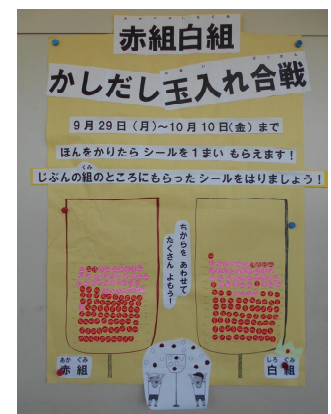 赤組白組
かしだし玉入れ合戦
9月29日(月)～10月10日(金)まで
ほんをかりたら シールを1まい もらえます！
じぶんの組のところにもらったシールをはりましょう！
くみ
ちからを あわせて
たくさん よもう！
あか ぐみ
赤組
しろ ぐみ
白組